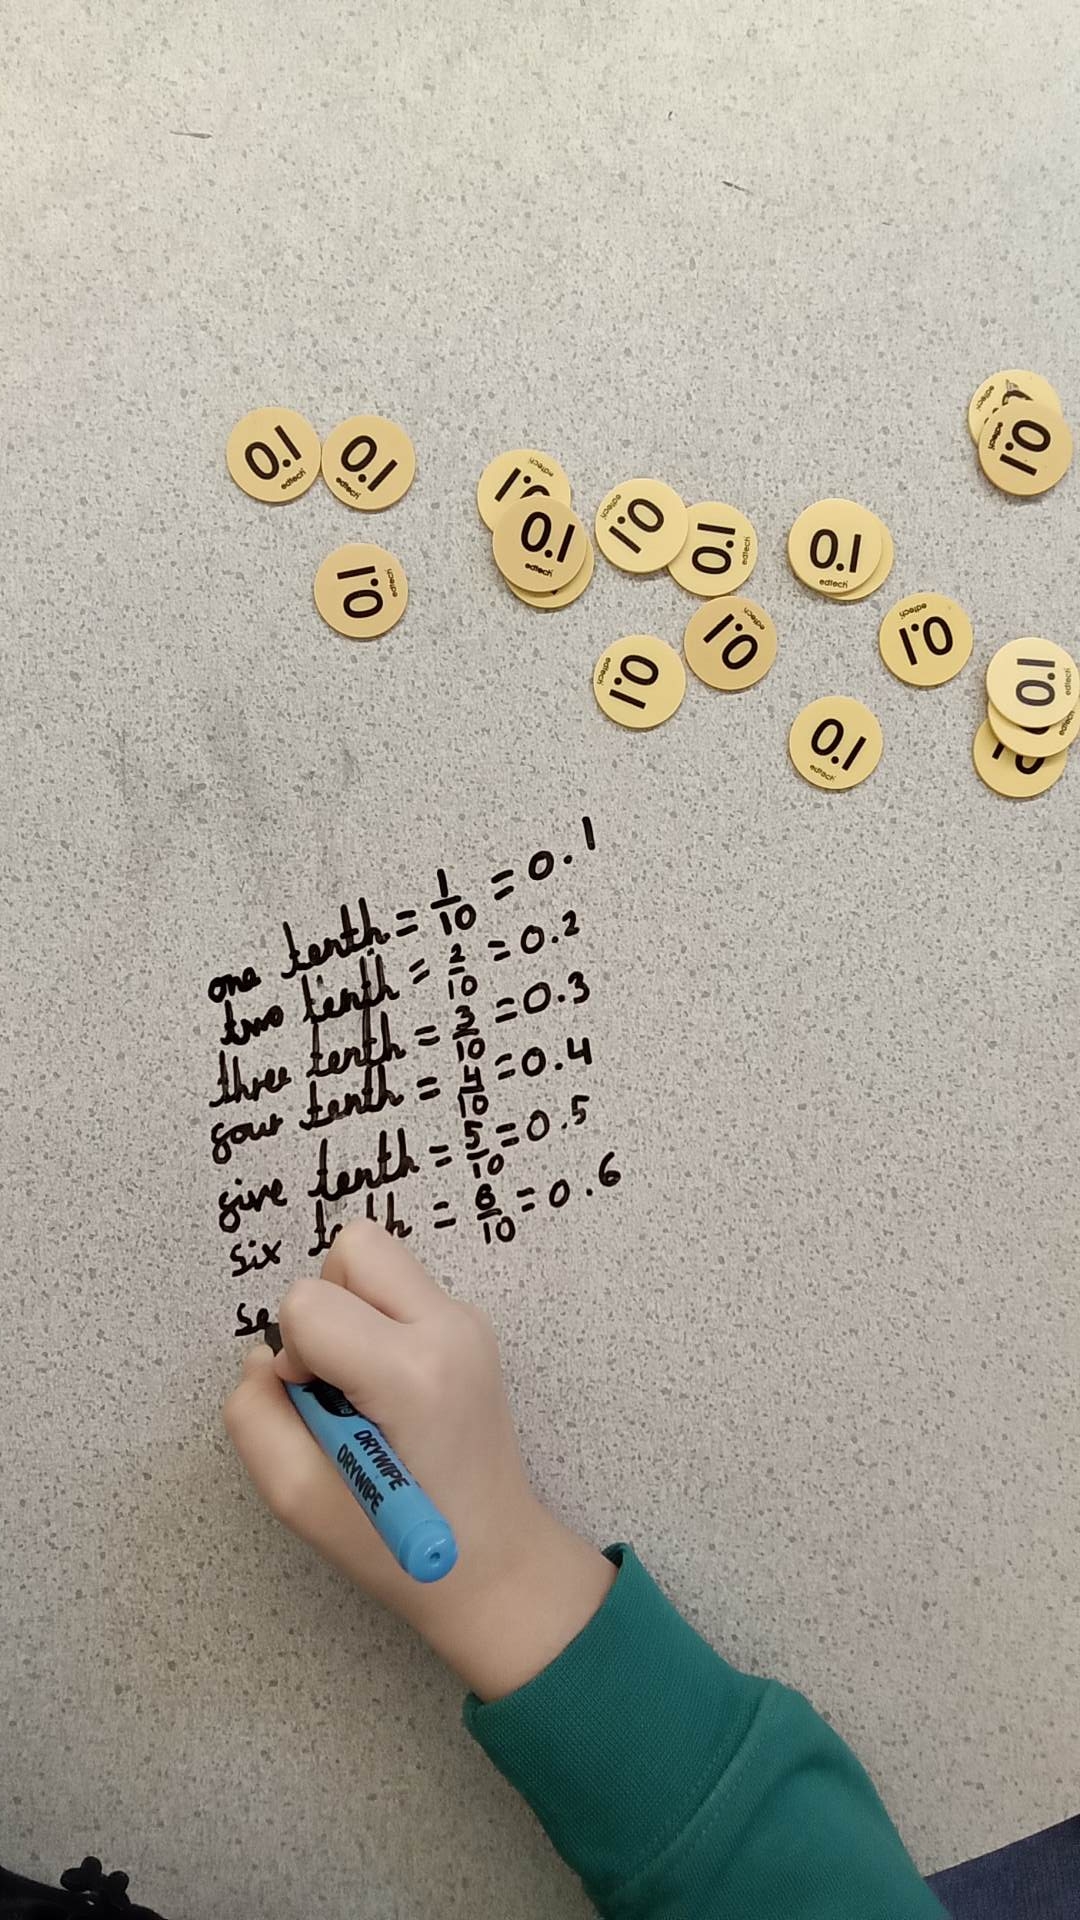 0.1 edtech
0.1 edtech
0.1 edtech
edtech
0.1 edtech
0.1 edtech
0.1 edtech
0.1 edtech
0.1 edtech
0.1 edtech
0.1 edtech
0.1 edtech
0.1 edtech
0.1 edtech
edtech
one tenth = 1/10 = 0.1
two tenth = 2/10 = 0.2
three tenth = 3/10 = 0.3
four tenth = 4/10 = 0.4
five tenth = 5/10 = 0.5
six tenth = 6/10 = 0.6
se
DRYWIPE
DRYWIPE